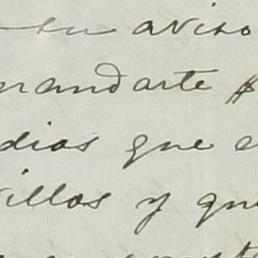 su aviso
mandarte
dias que
illos y que